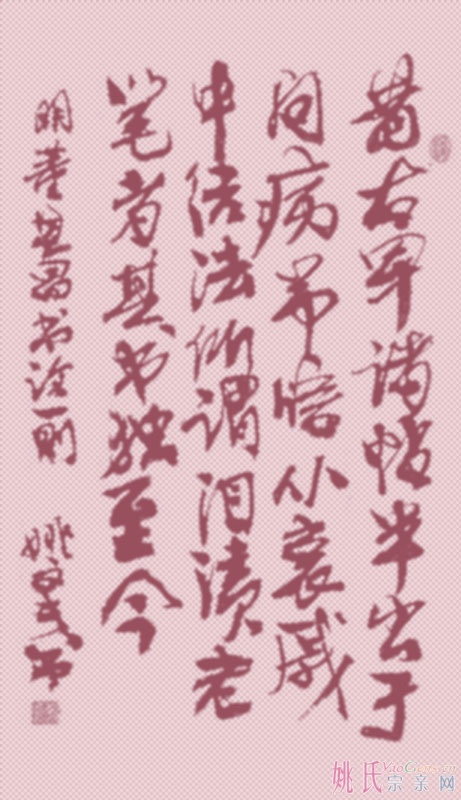 昔右军诸帖半出于
问病吊唁从哀戚
中结法所谓泪渍老
笔者其书独至今
明董其昌书诠一则 姚
姚氏宗亲网